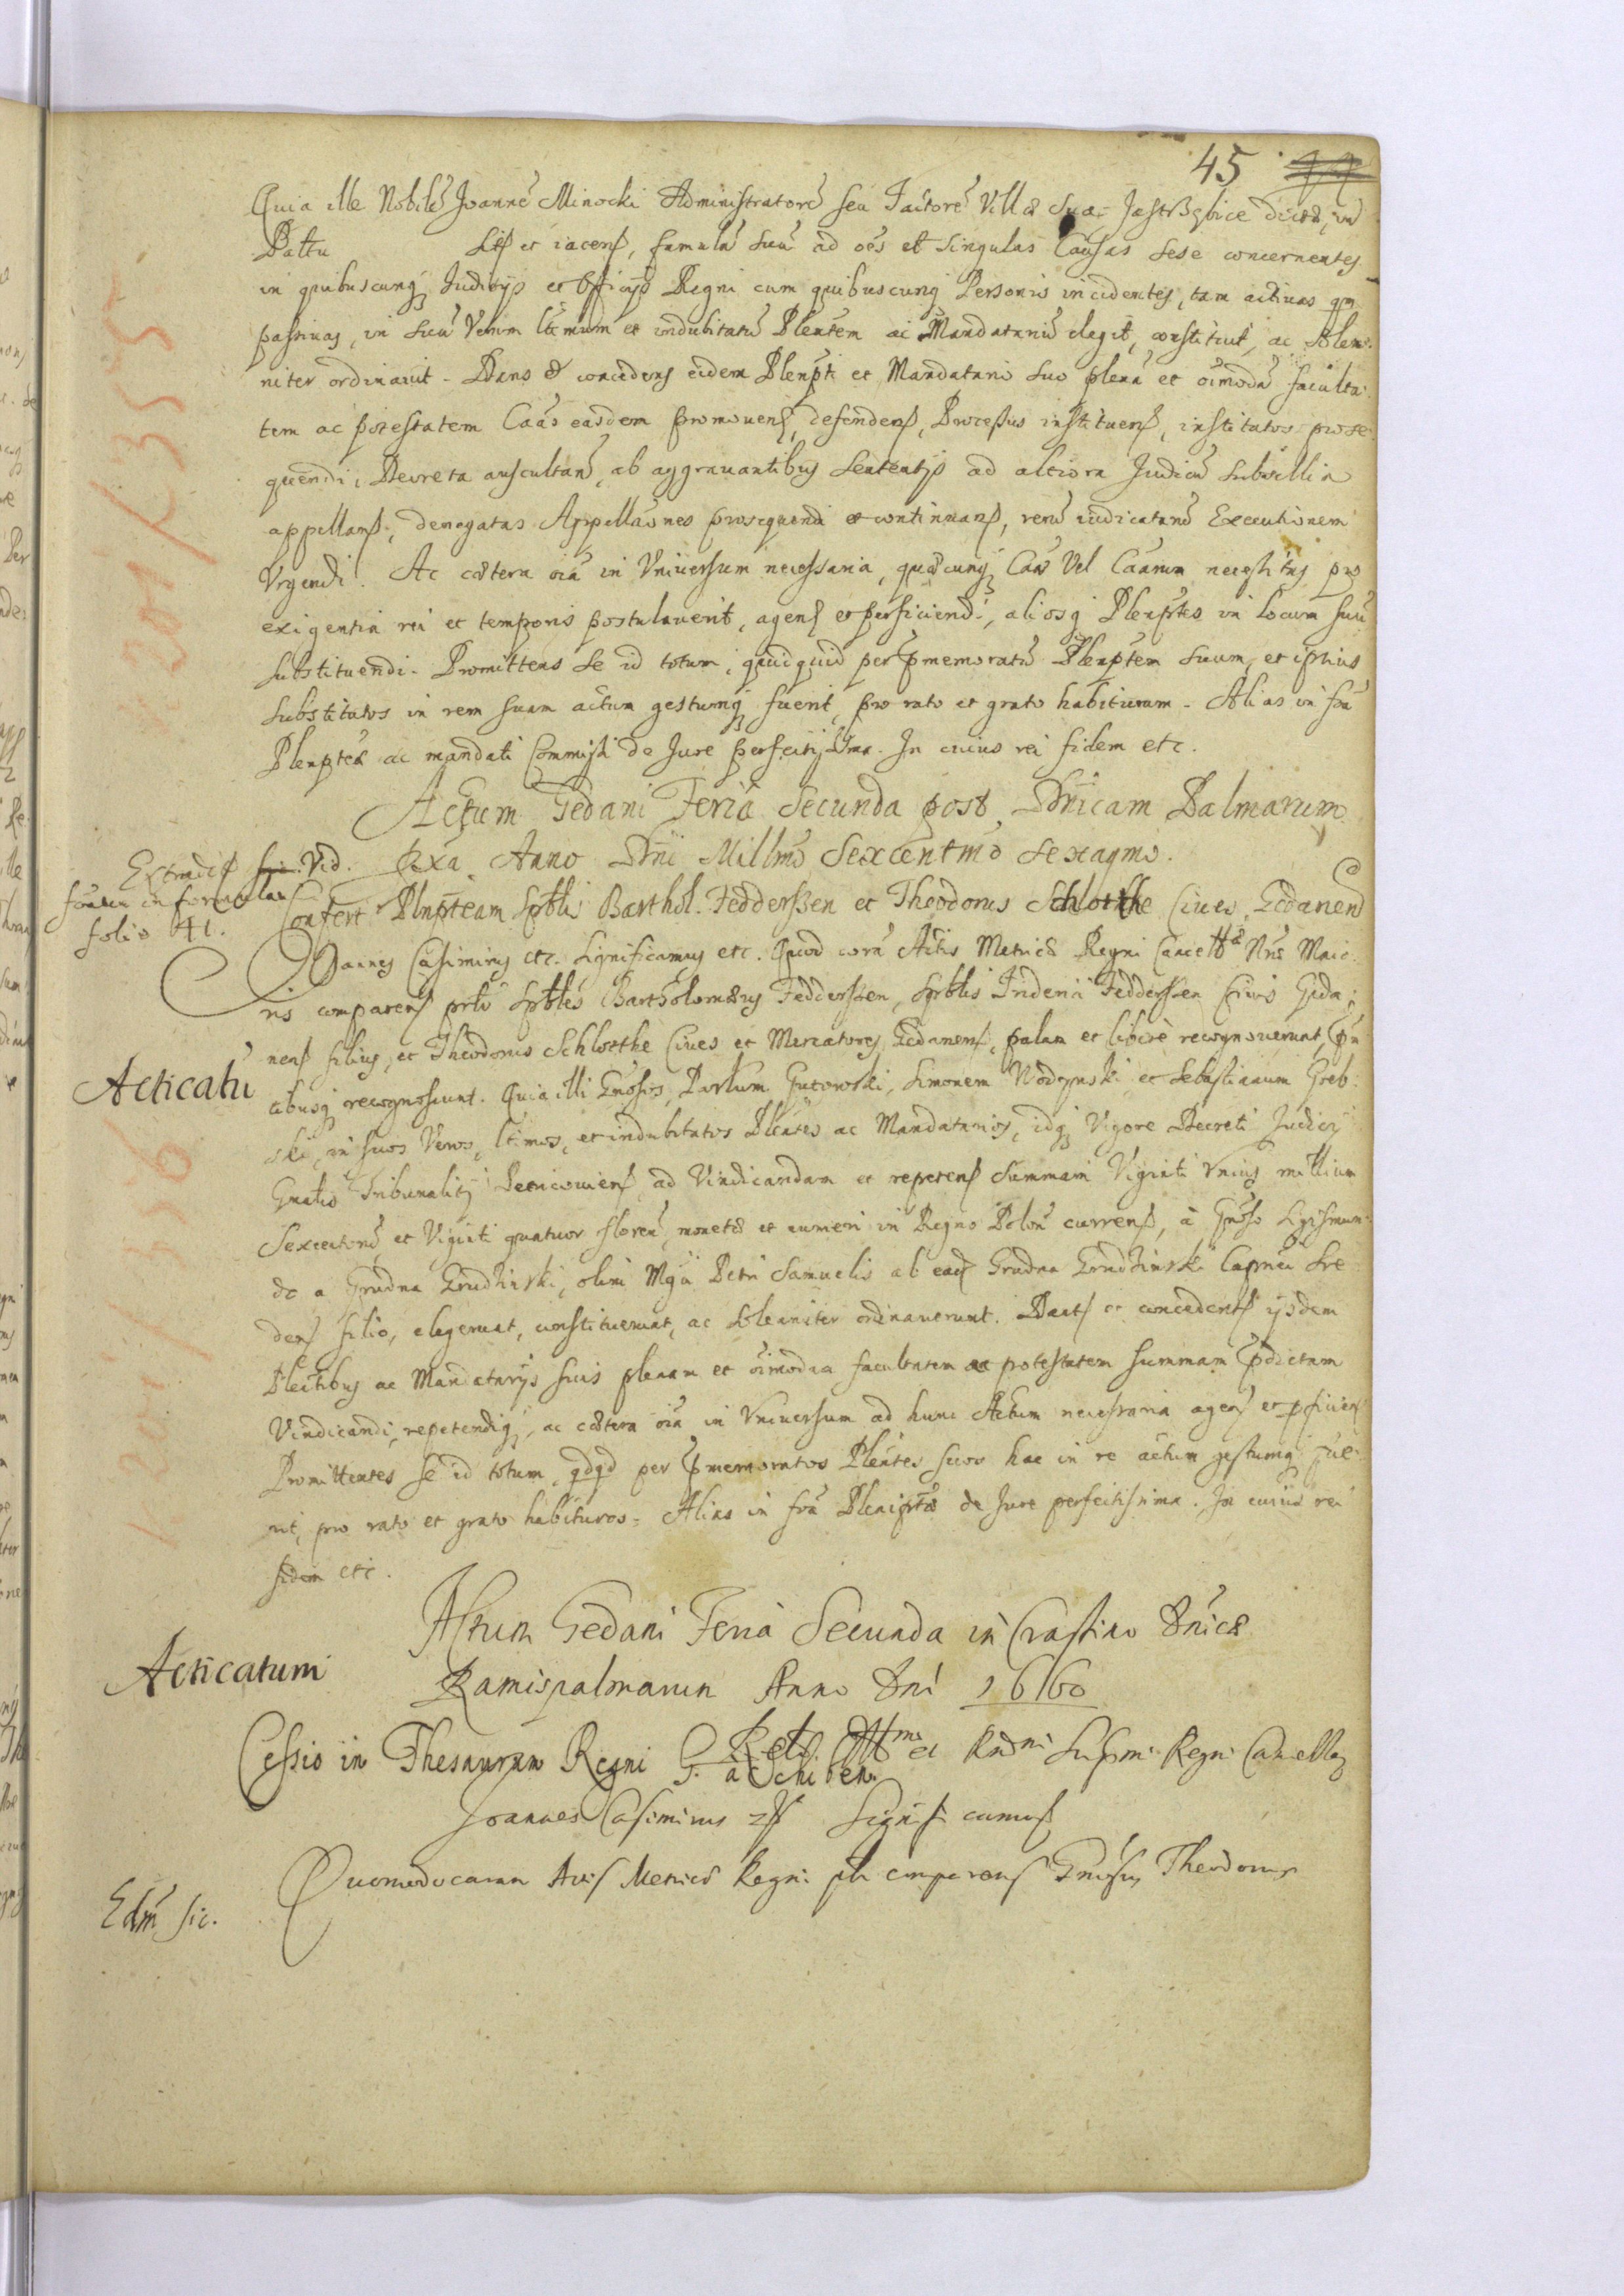 45
Quia ille Nobilē Joannē Minocki Administratorē seu Factorē Villæ Suæ Jastrzębice dictæ, in
Pattu sitſ et iacenſ, famulū suū ad oēs et singulas Causas sese concernentes
in quibuscunq; Judicijs et Officijs Regni cum quibuscunq; Personis incidentes, tam activas qm
passivas, in suū Verum ltimum et indubitatū Plentem ac Mandatariū elegit, constituit, ac solem-
niter ordinavit. Dans & concedens eidem Plenpti et Mandatario suo plenā et oīmodā faculta-
tem ac potestatem Caās easdem promovenſ, defendenſ, Processus instituenſ, institutos prose-
quendi, Decreta auscultanſ, ab aggravantibus Sententijs ad altiora Judicū subsellia
appellanſ, denegatas Appellaōnes prosequendi et continuanſ, rerū iudicatarū Executionem
Urgendi. Ac cætera oīa in Universum necessaria, quæcunq; Caæ Vel Caarum necessitas pro
exigentia rei et temporis postulaverit, agenſ et perficiendi, aliosq; Plenptes in locum suū
substituendi. Promittens se id totum, quidquid per pmemoratū Plenptem suum, et ipsius
substitutos in rem suam actum gestumq; fuerit, pro rato et grato habiturum. Alias in frā
Plenptæ ac mandati Commissi de Jure perfectissima. In cuius rei fidem etc.
Actum Gedani Feria Secunda post Dnicam Palmarum
Extradit Vid.
Anno Dni Millmo Sexcentmo Sexagmo.
in formula
folio 41.
Confert Plnpteam Spblis Barthol. Fedderßen et Theodorus Schlotthe Cives Gedanenſ
Joannes Casimirus etc. Significamus etc. Quod corā Actis Metricæ Regni Cancellæ Nræ Maio-
ris comparenſ prlr Spbles Bartholomæus Fedderssen, Spblis Friderici Fedderssen Civis Geda-
nenſ filius, et Theodorus Schlotthe Cives et Mercatores Gedanenſ, palam et liberè recognoverunt, pn
Acticatū
tibusq; recognoscunt. Quia illi Gnosos, Paulum Gutowski, Simonem Wodzynski et Sebastianum Greb-
ski, in suos Veros, ltimos, et indubitatos Plentes ac Mandatarios, idq; Vigore Decreti Judicij
Gnalis Tribunalis Petricoviens ad Vindicandam et repetenſ Summam Viginti unius millium
Sexcentorū et Viginti quatuor florenū, monetæ et numeri in Regno Polonū currenſ, à Gnoso Sigismun-
do a Grudna Grudzinski, olim Mgci Petri Samuelis ab eadſ Grudna Grudzinski Capnei Sre-
denſ filio, elegerunt, constituerunt, ac solemniter ordinaverunt. Dantſ et concedentſ ijsdem
Plentibus ac Mandatarijs suis plenam et oīmodam facultatem ac potestatem summam pdictam
Vindicandi, repetendiq; ac cætera oīa in Universum ad hunc Actum necessaria agenſ et pficienſ
Promittentes se id totum, qdqd per pmemoratos Plentes suos hac in re actum gestumq; fue-
rit, pro rato et grato habituros. Alias in frā Plenipotæ de Jure perfectissima. In cuius rei
fidem etc.
Actum Gedani Feria Secunda in Crastino Dnicæ
Acticatum
Ramispalmarum Anno Dni 1660
Cessio in Thesaurum Regni G. à Schiben. Relō Illmi et Rndmi Supmi Regni Cancellarij
Joannes Casimirus Significamus
Quomodo coram Actis Metricæ Regni plr comparens Gnosus Theodorus
Edm sic.